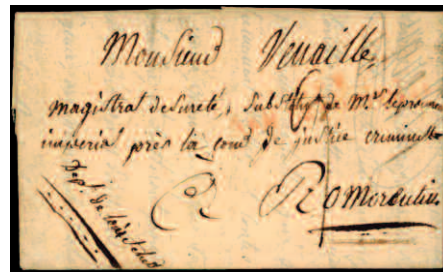 Monsieur Venaille,
magistrat de sureté, Substitut de Mr. le procureur
imperial près la Cour de justice criminelle
A Romorentin
Dept. de Loir & cher